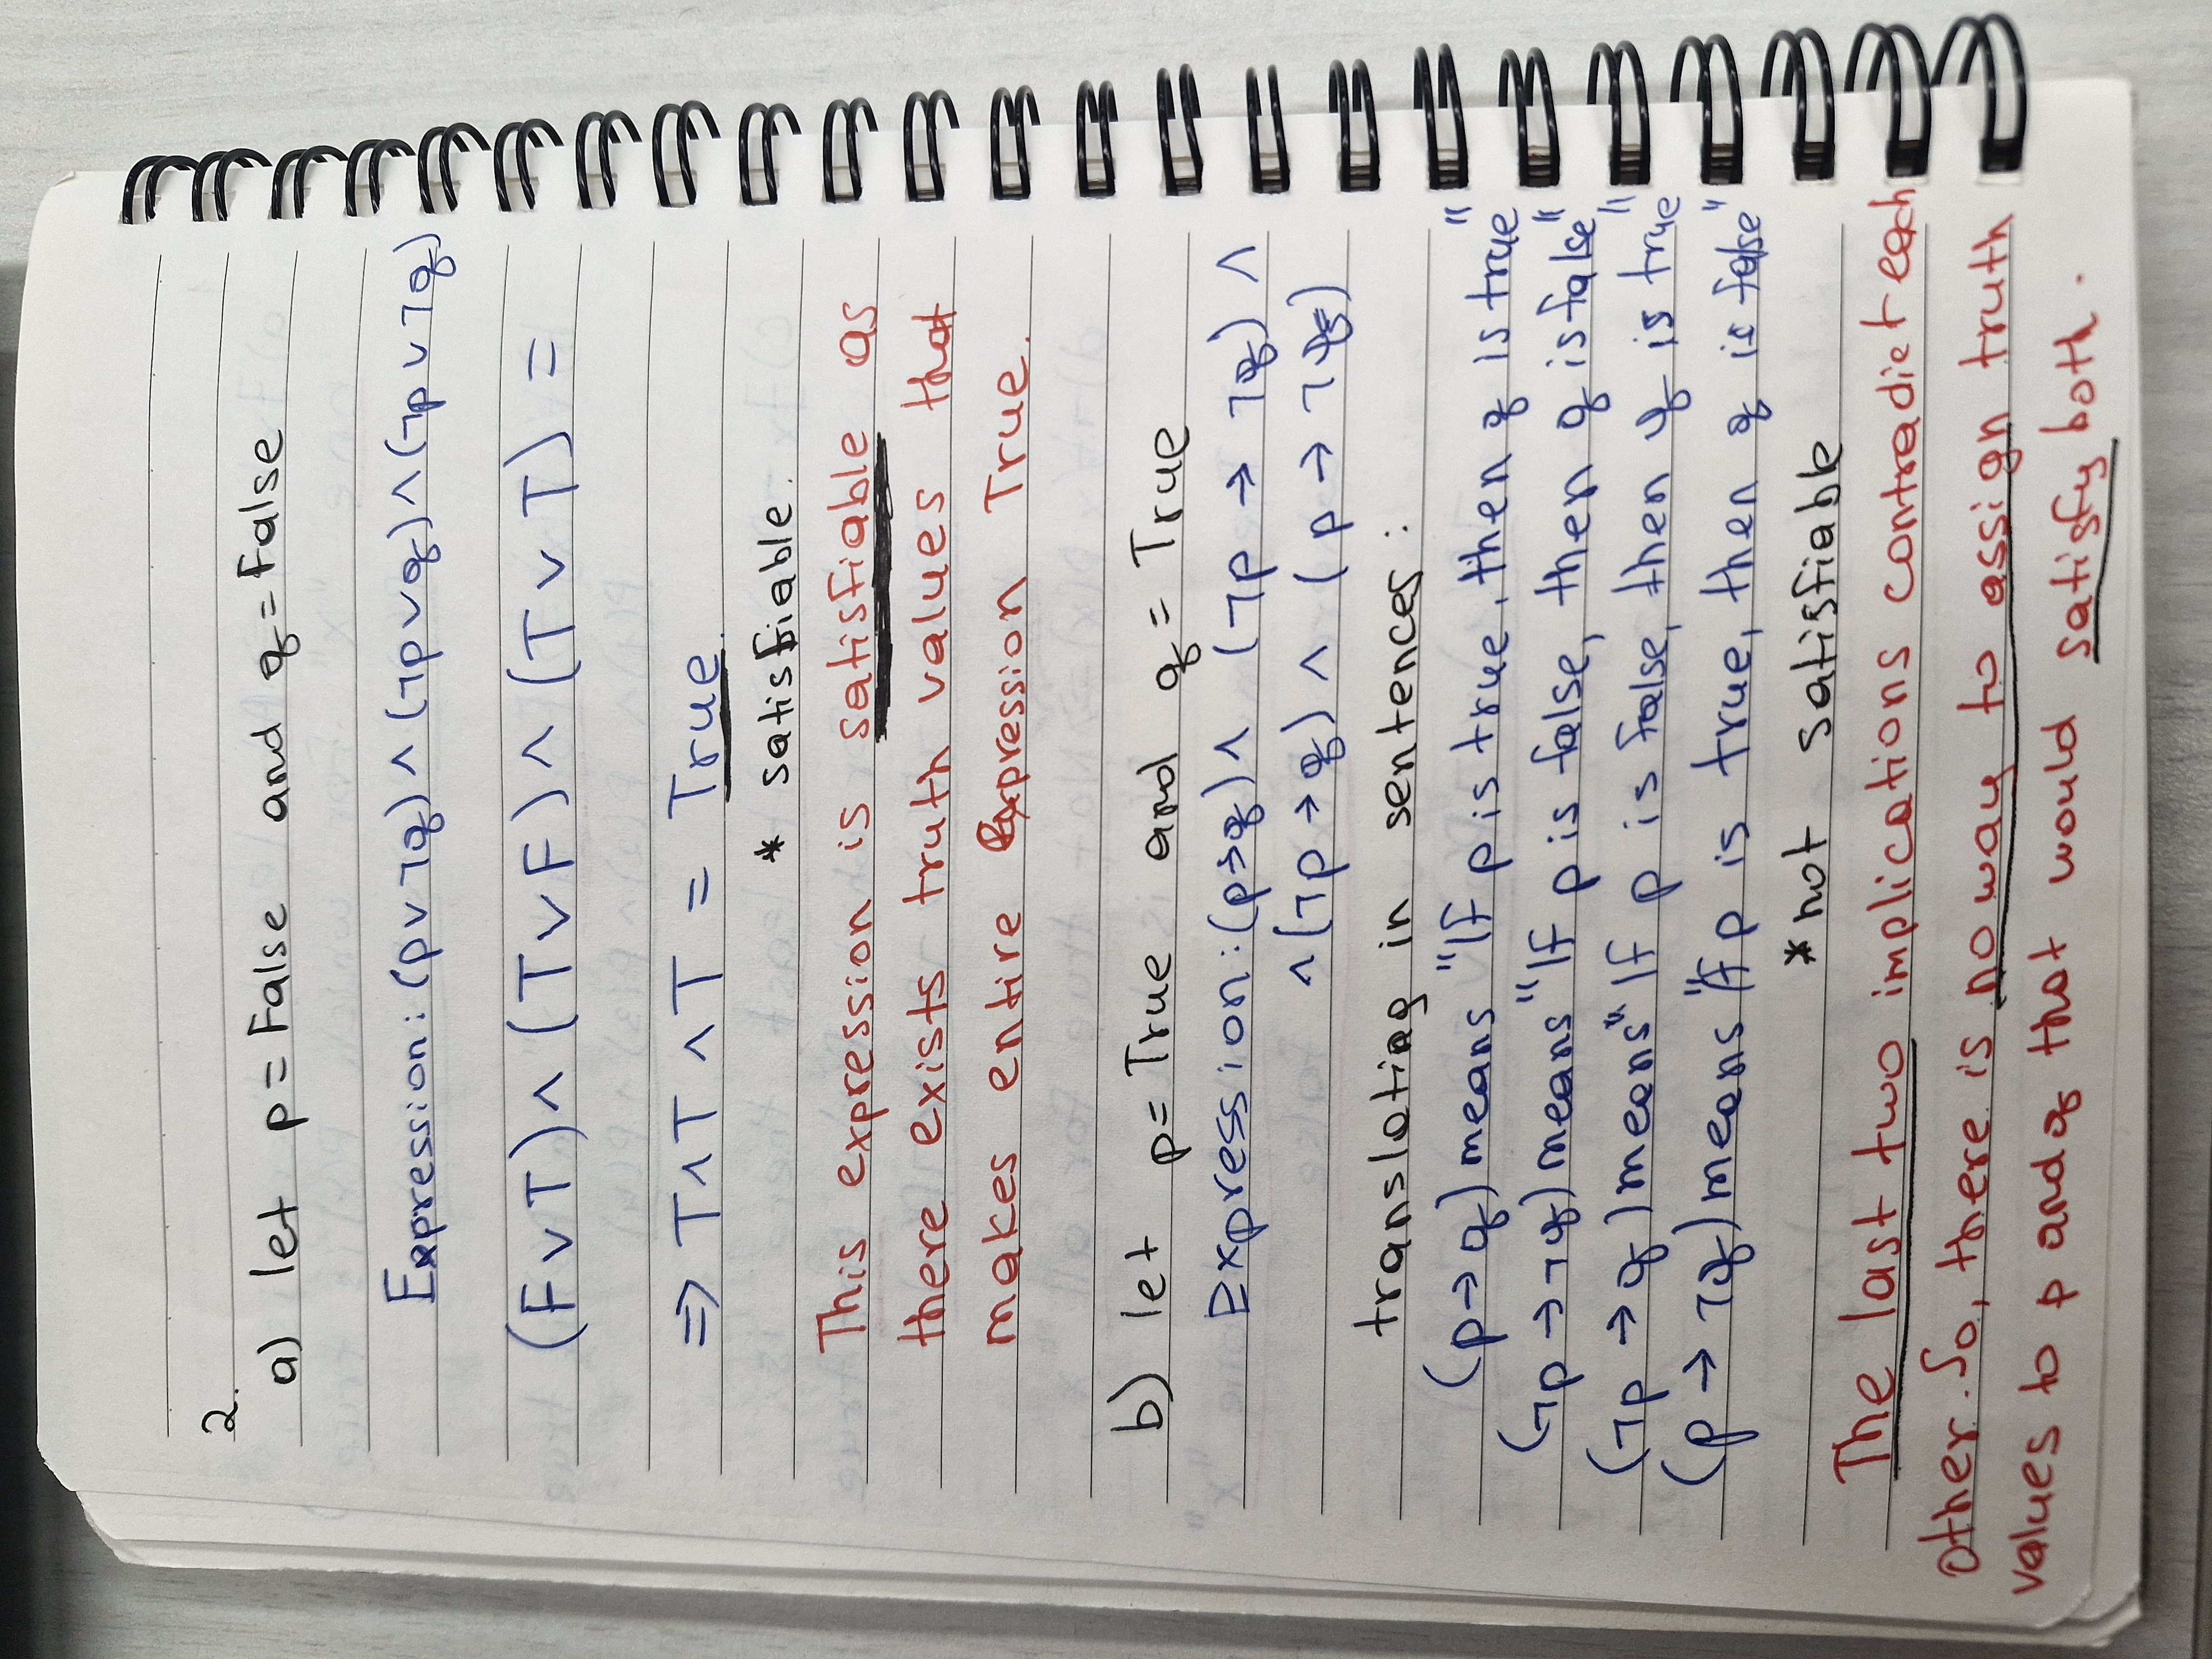 2.
a) let p = False and q = False
Expression: (p ∨ ¬q) ∧ (¬p ∨ q) ∧ (¬p ∨ ¬q)
(F ∨ T) ∧ (T ∨ F) ∧ (T ∨ T) =
=> T ∧ T ∧ T = True.
* satisfiable.
This expression is satisfiable as
there exists truth values that
makes entire Expression True.
b) let p = True and q = True
Expression: (p → q) ∧ (¬p → ¬q) ∧
∧ (¬p → q) ∧ (p → ¬q)
translating in sentences:
(p → q) means "If p is true, then q is true"
(¬p → ¬q) means "If p is false, then q is false"
(¬p → q) means "If p is false, then q is true"
(p → ¬q) means "If p is true, then q is false"
* not satisfiable
The last two implications contradict each
other. So, there is no way to assign truth
values to p and q that would satisfy both.